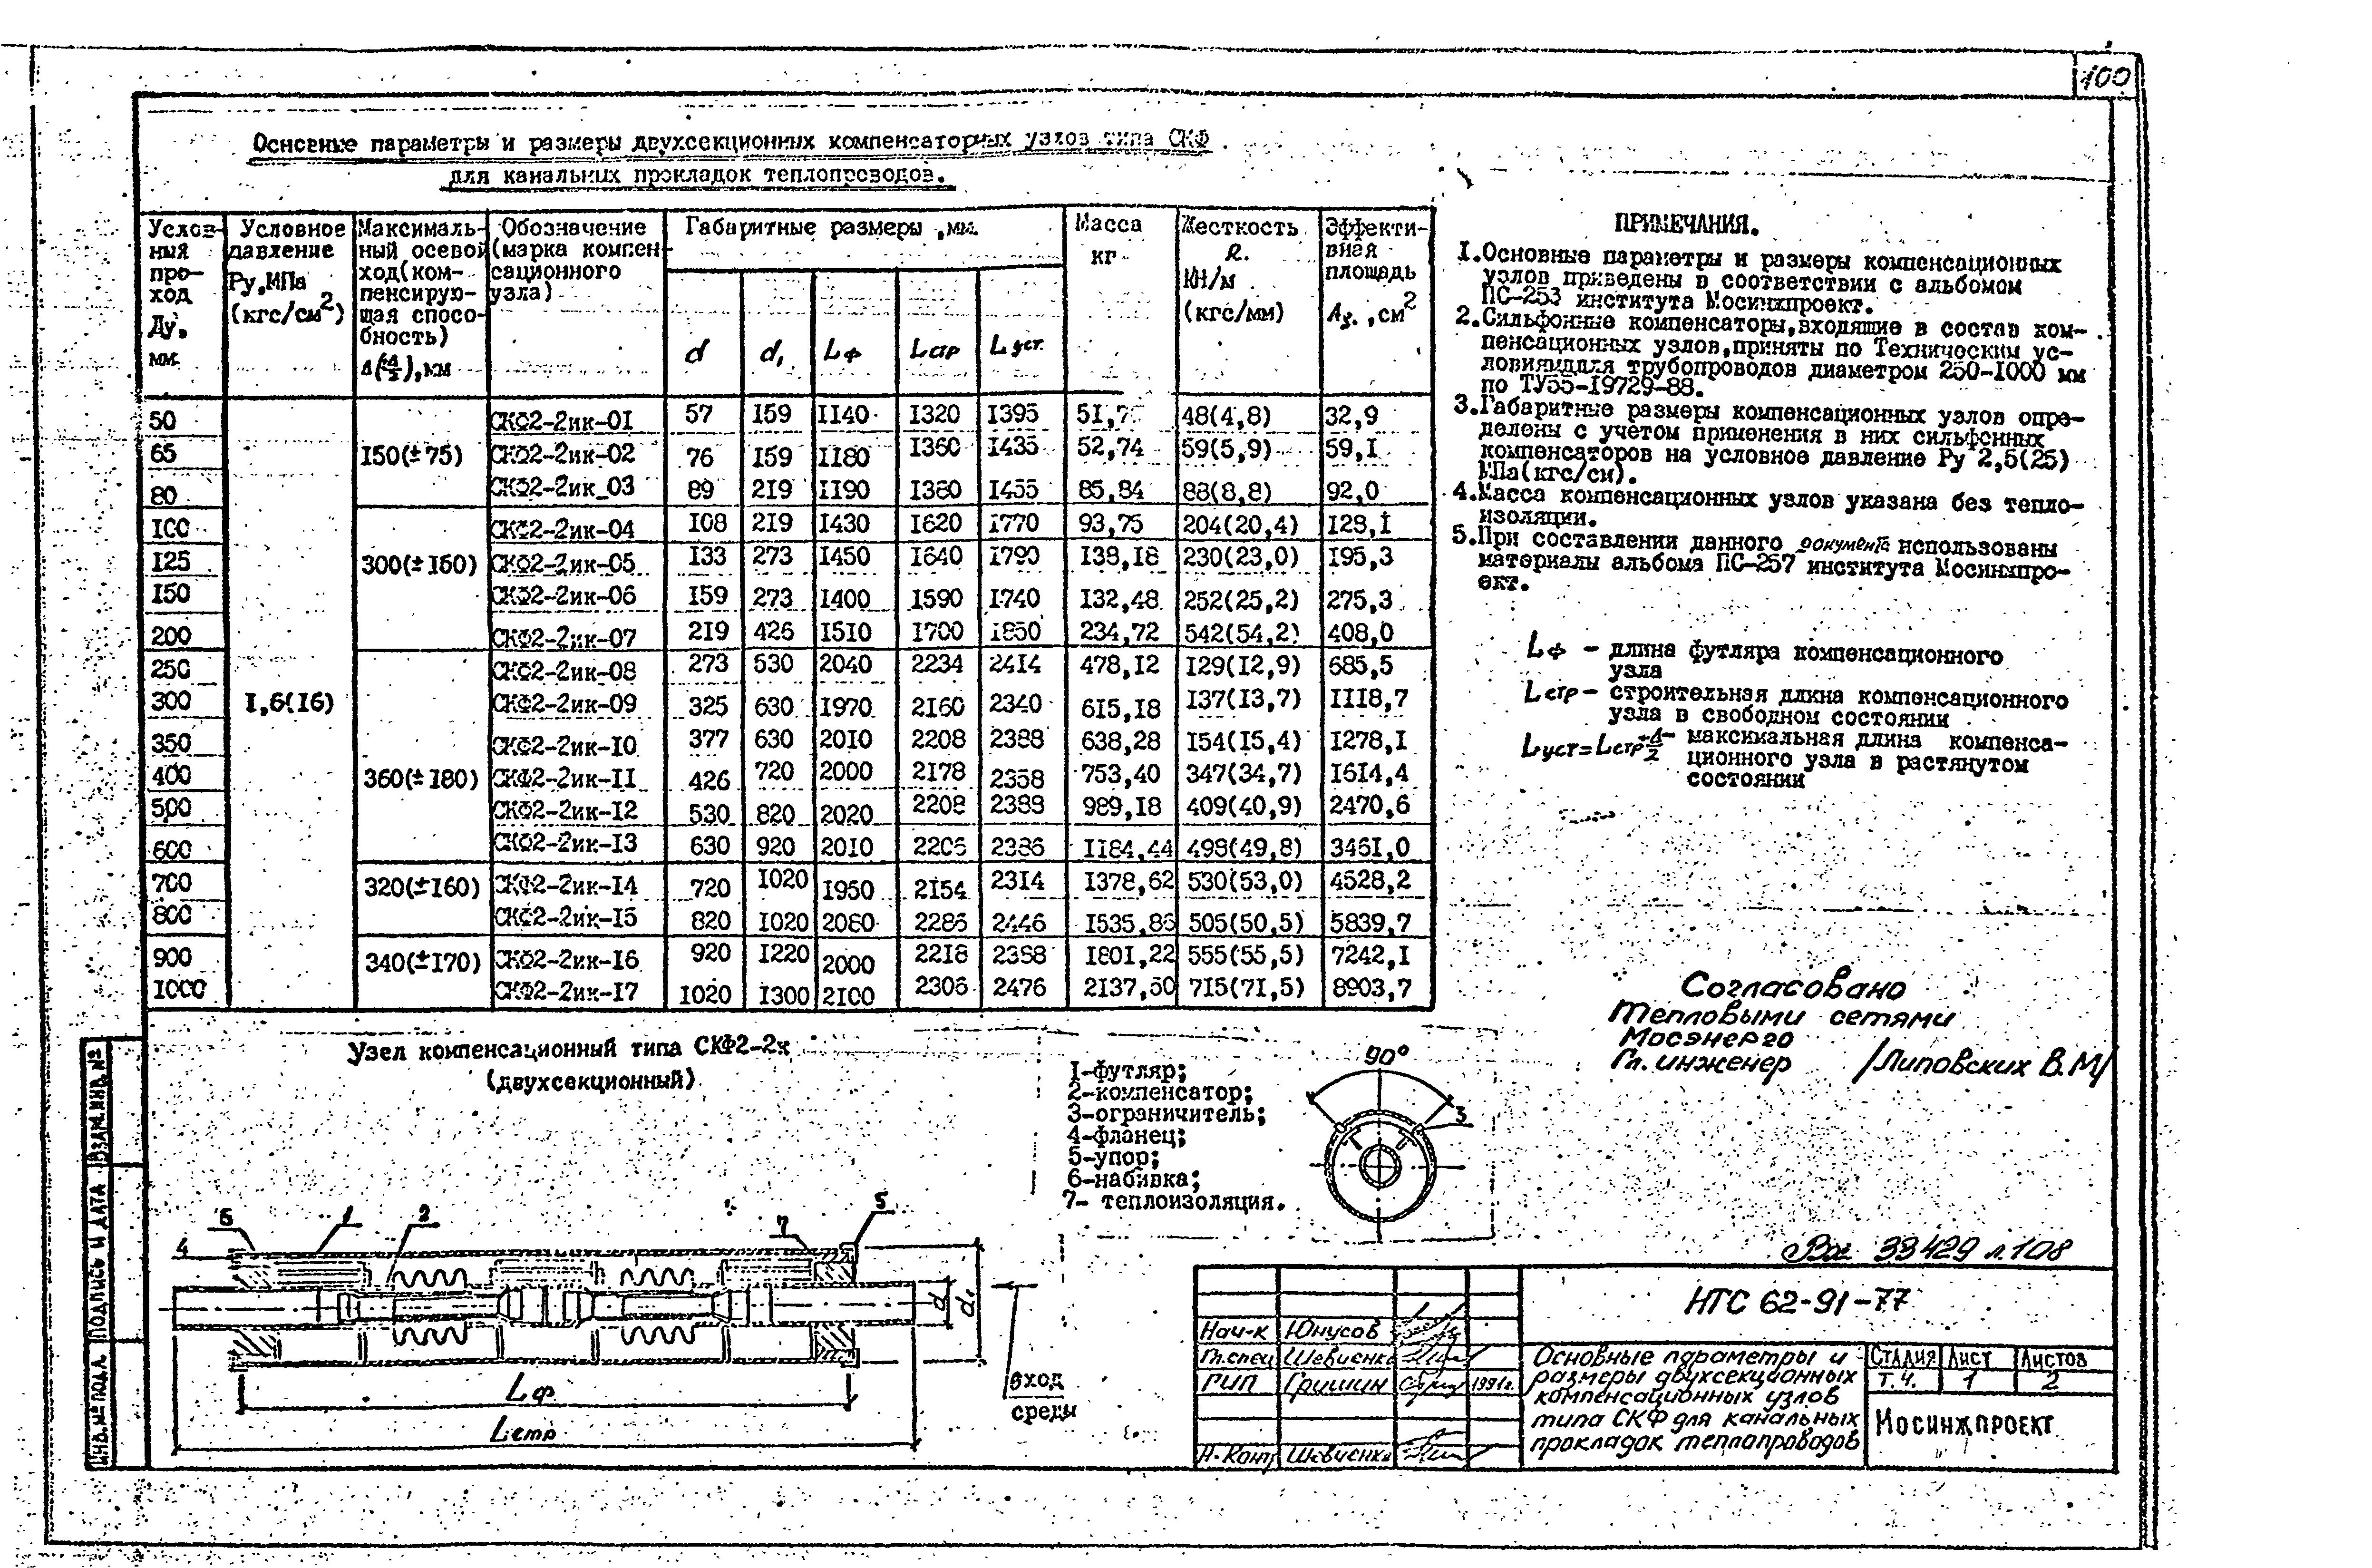 100
Основные параметры и размеры двухсекционных компенсаторных узлов типа СКФ
для канальных прокладок теплопроводов.
Условный проход Ду, мм | Условное давление Ру,МПа (кгс/см²) | Максимальный осевой ход(компенсирующая способность) Δ(±Δ/2),мм | Обозначение (марка компенсационного узла) | Габаритные размеры ,мм. | Масса кг | Жесткость R. КН/м (кгс/мм) | Эффективная площадь Aэ. ,см²
d | d₁ | Lф | Lстр | Lуст.
50 | СКФ2-2ик-01 | 57 | 159 | 1140 | 1320 | 1395 | 48(4,8) | 32,9
65 | 150(±75) | СКФ2-2ик-02 | 76 | 159 | 1180 | 1360 | 1435 | 52,74 | 59(5,9) | 59,1
80 | СКФ2-2ик-03 | 89 | 219 | 1190 | 1380 | 1455 | 85,84 | 88(8,8) | 92,0
100 | СКФ2-2ик-04 | 108 | 219 | 1430 | 1620 | 1770 | 93,75 | 204(20,4) | 128,1
125 | 300(±150) | СКФ2-2ик-05 | 133 | 273 | 1450 | 1640 | 1790 | 138,18 | 230(23,0) | 195,3
150 | СКФ2-2ик-06 | 159 | 273 | 1400 | 1590 | 1740 | 132,48 | 252(25,2) | 275,3
200 | СКФ2-2ик-07 | 219 | 426 | 1510 | 1700 | 1850 | 234,72 | 542(54,2) | 408,0
250 | СКФ2-2ик-08 | 273 | 530 | 2040 | 2234 | 2414 | 478,12 | 129(12,9) | 685,5
300 | 1,6(16) | СКФ2-2ик-09 | 325 | 630 | 1970 | 2160 | 2340 | 615,18 | 137(13,7) | 1118,7
350 | СКФ2-2ик-10 | 377 | 630 | 2010 | 2208 | 2388 | 638,28 | 154(15,4) | 1278,1
400 | 360(±180) | СКФ2-2ик-11 | 426 | 720 | 2000 | 2178 | 2358 | 753,40 | 347(34,7) | 1614,4
500 | СКФ2-2ик-12 | 530 | 820 | 2020 | 2208 | 2388 | 989,18 | 409(40,9) | 2470,6
600 | СКФ2-2ик-13 | 630 | 920 | 2010 | 2206 | 2386 | 1184,44 | 498(49,8) | 3461,0
700 | 320(±160) | СКФ2-2ик-14 | 720 | 1020 | 1950 | 2154 | 2314 | 1378,62 | 530(53,0) | 4528,2
800 | СКФ2-2ик-15 | 820 | 1020 | 2080 | 2286 | 2446 | 1535,86 | 505(50,5) | 5839,7
900 | 340(±170) | СКФ2-2ик-16 | 920 | 1220 | 2000 | 2218 | 2388 | 1801,22 | 555(55,5) | 7242,1
1000 | СКФ2-2ик-17 | 1020 | 1300 | 2100 | 2306 | 2476 | 2137,50 | 715(71,5) | 8903,7
ПРИМЕЧАНИЯ.
1.Основные параметры и размеры компенсационных
узлов приведены в соответствии с альбомом
ПС-253 института Мосинжпроект.
2.Сильфонные компенсаторы,входящие в состав ком-
пенсационных узлов,приняты по Техническим ус-
ловиям для трубопроводов диаметром 250-1000 мм
по ТУ55-19729-88.
3.Габаритные размеры компенсационных узлов опре-
делены с учетом применения в них сильфонных
компенсаторов на условное давление Ру 2,5(25)
МПа(кгс/см).
4.Масса компенсационных узлов указана без тепло-
изоляции.
5.При составлении данного документа использованы
материалы альбома ПС-257 института Мосинжпро-
ект.
Lф - длина футляра компенсационного
узла
Lстр - строительная длина компенсационного
узла в свободном состоянии
Lуст=Lстр+Δ/2 - максимальная длина компенса-
ционного узла в растянутом
состоянии
Согласовано
Тепловыми сетями
Мосэнерго
Гл. инженер /Липовских В.М/
Узел компенсационный типа СКФ2-2к
(двухсекционный)
1-футляр;
2-компенсатор;
3-ограничитель;
4-фланец;
5-упор;
6-набивка;
7- теплоизоляция.
90°
3
6 1 2 7 5
4
d d₁
Lф
Lстр
вход
среды
33429 л.108
НТС 62-91-77
Нач-к Юнусов
Гл.спец Шевченко
ГИП Гришин 1991г.
Н.Конт Шевченко
Основные параметры и
размеры двухсекционных
компенсационных узлов
типа СКФ для канальных
прокладок теплопроводов
Стадия Лист Листов
Т.Ч. 1 2
Мосинжпроект
Инв.№ подл. Подпись и дата Взам.инв.№